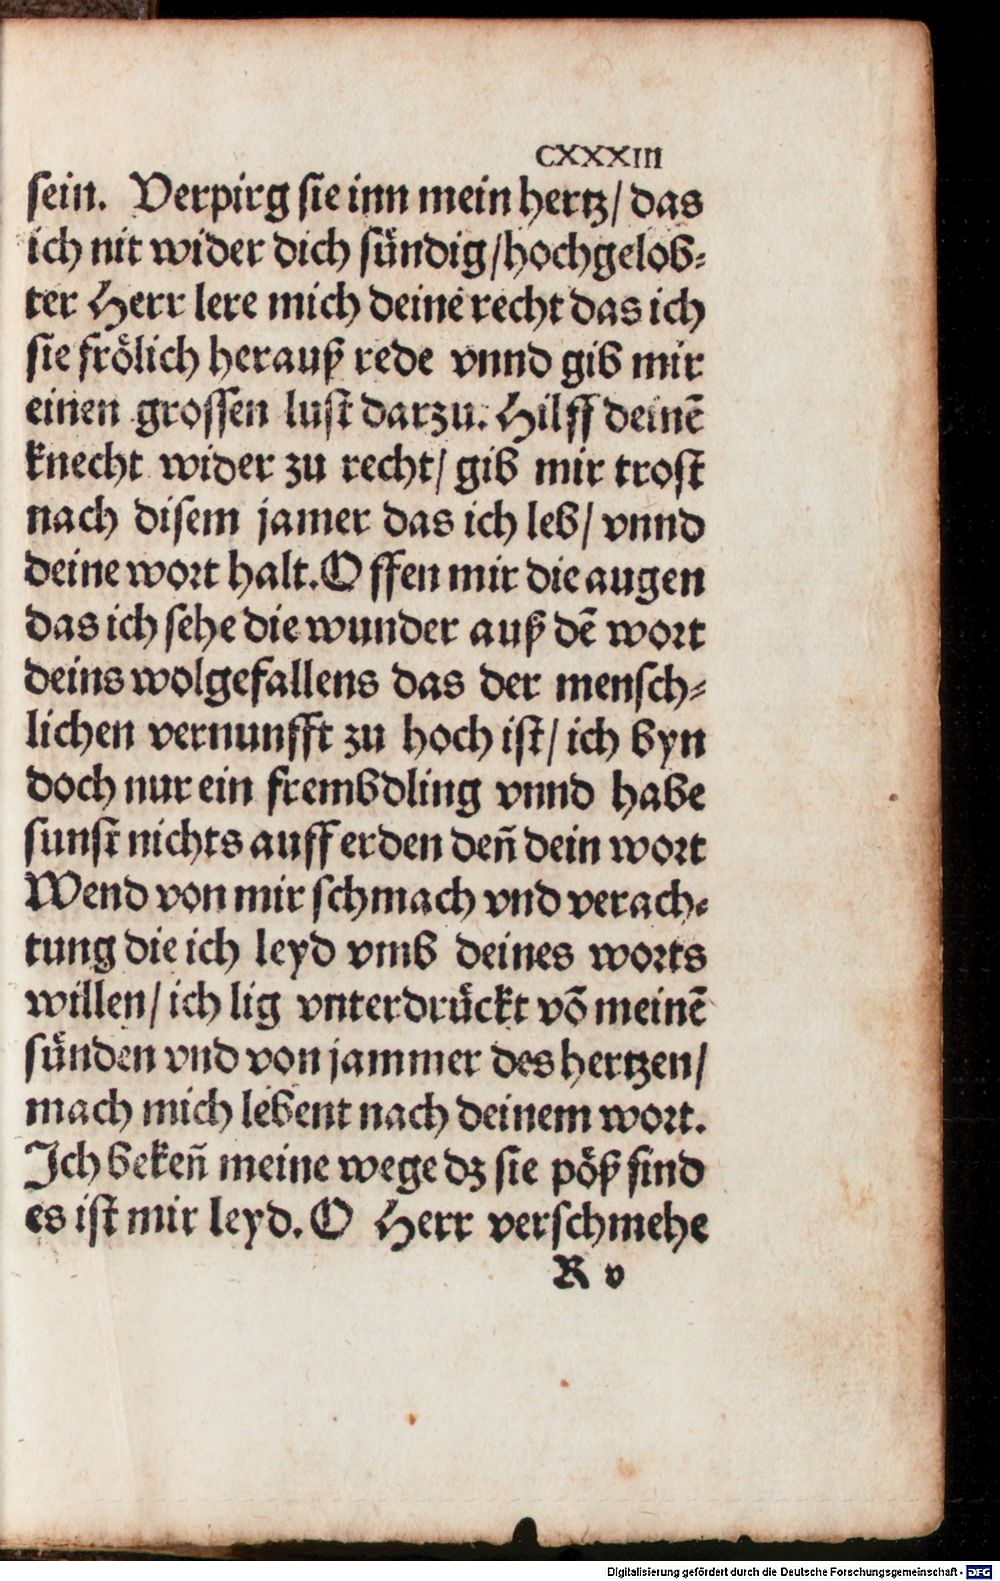 CXXXIII
sein. Verpirg sie inn mein hertz/ das
ich nit wider dich sündig/hochgelob⸗
ter Herr lere mich deine recht das ich
sie frölich herauß rede vnnd gib mir
einen grossen lust darzu. Hilff deinē
knecht wider zu recht/ gib mir trost
nach disem jamer das ich leb/ vnnd
deine wort halt. Offen mir die augen
das ich sehe die wunder auß dē wort
deins wolgefallens das der mensch⸗
lichen vernunfft zu hoch ist/ ich byn
doch nur ein frembdling vnnd habe
sunst nichts auff erden deñ dein wort
Wend von mir schmach vnd verach⸗
tung die ich leyd vmb deines worts
willen/ ich lig vnterdrückt vō meinē
sünden vnd von jammer des hertzen/
mach mich lebent nach deinem wort.
Ich bekeñ meine wege dz sie pöß sind
es ist mir leyd. O Herr verschmehe
R v
Digitalisierung gefördert durch die Deutsche Forschungsgemeinschaft - DFG